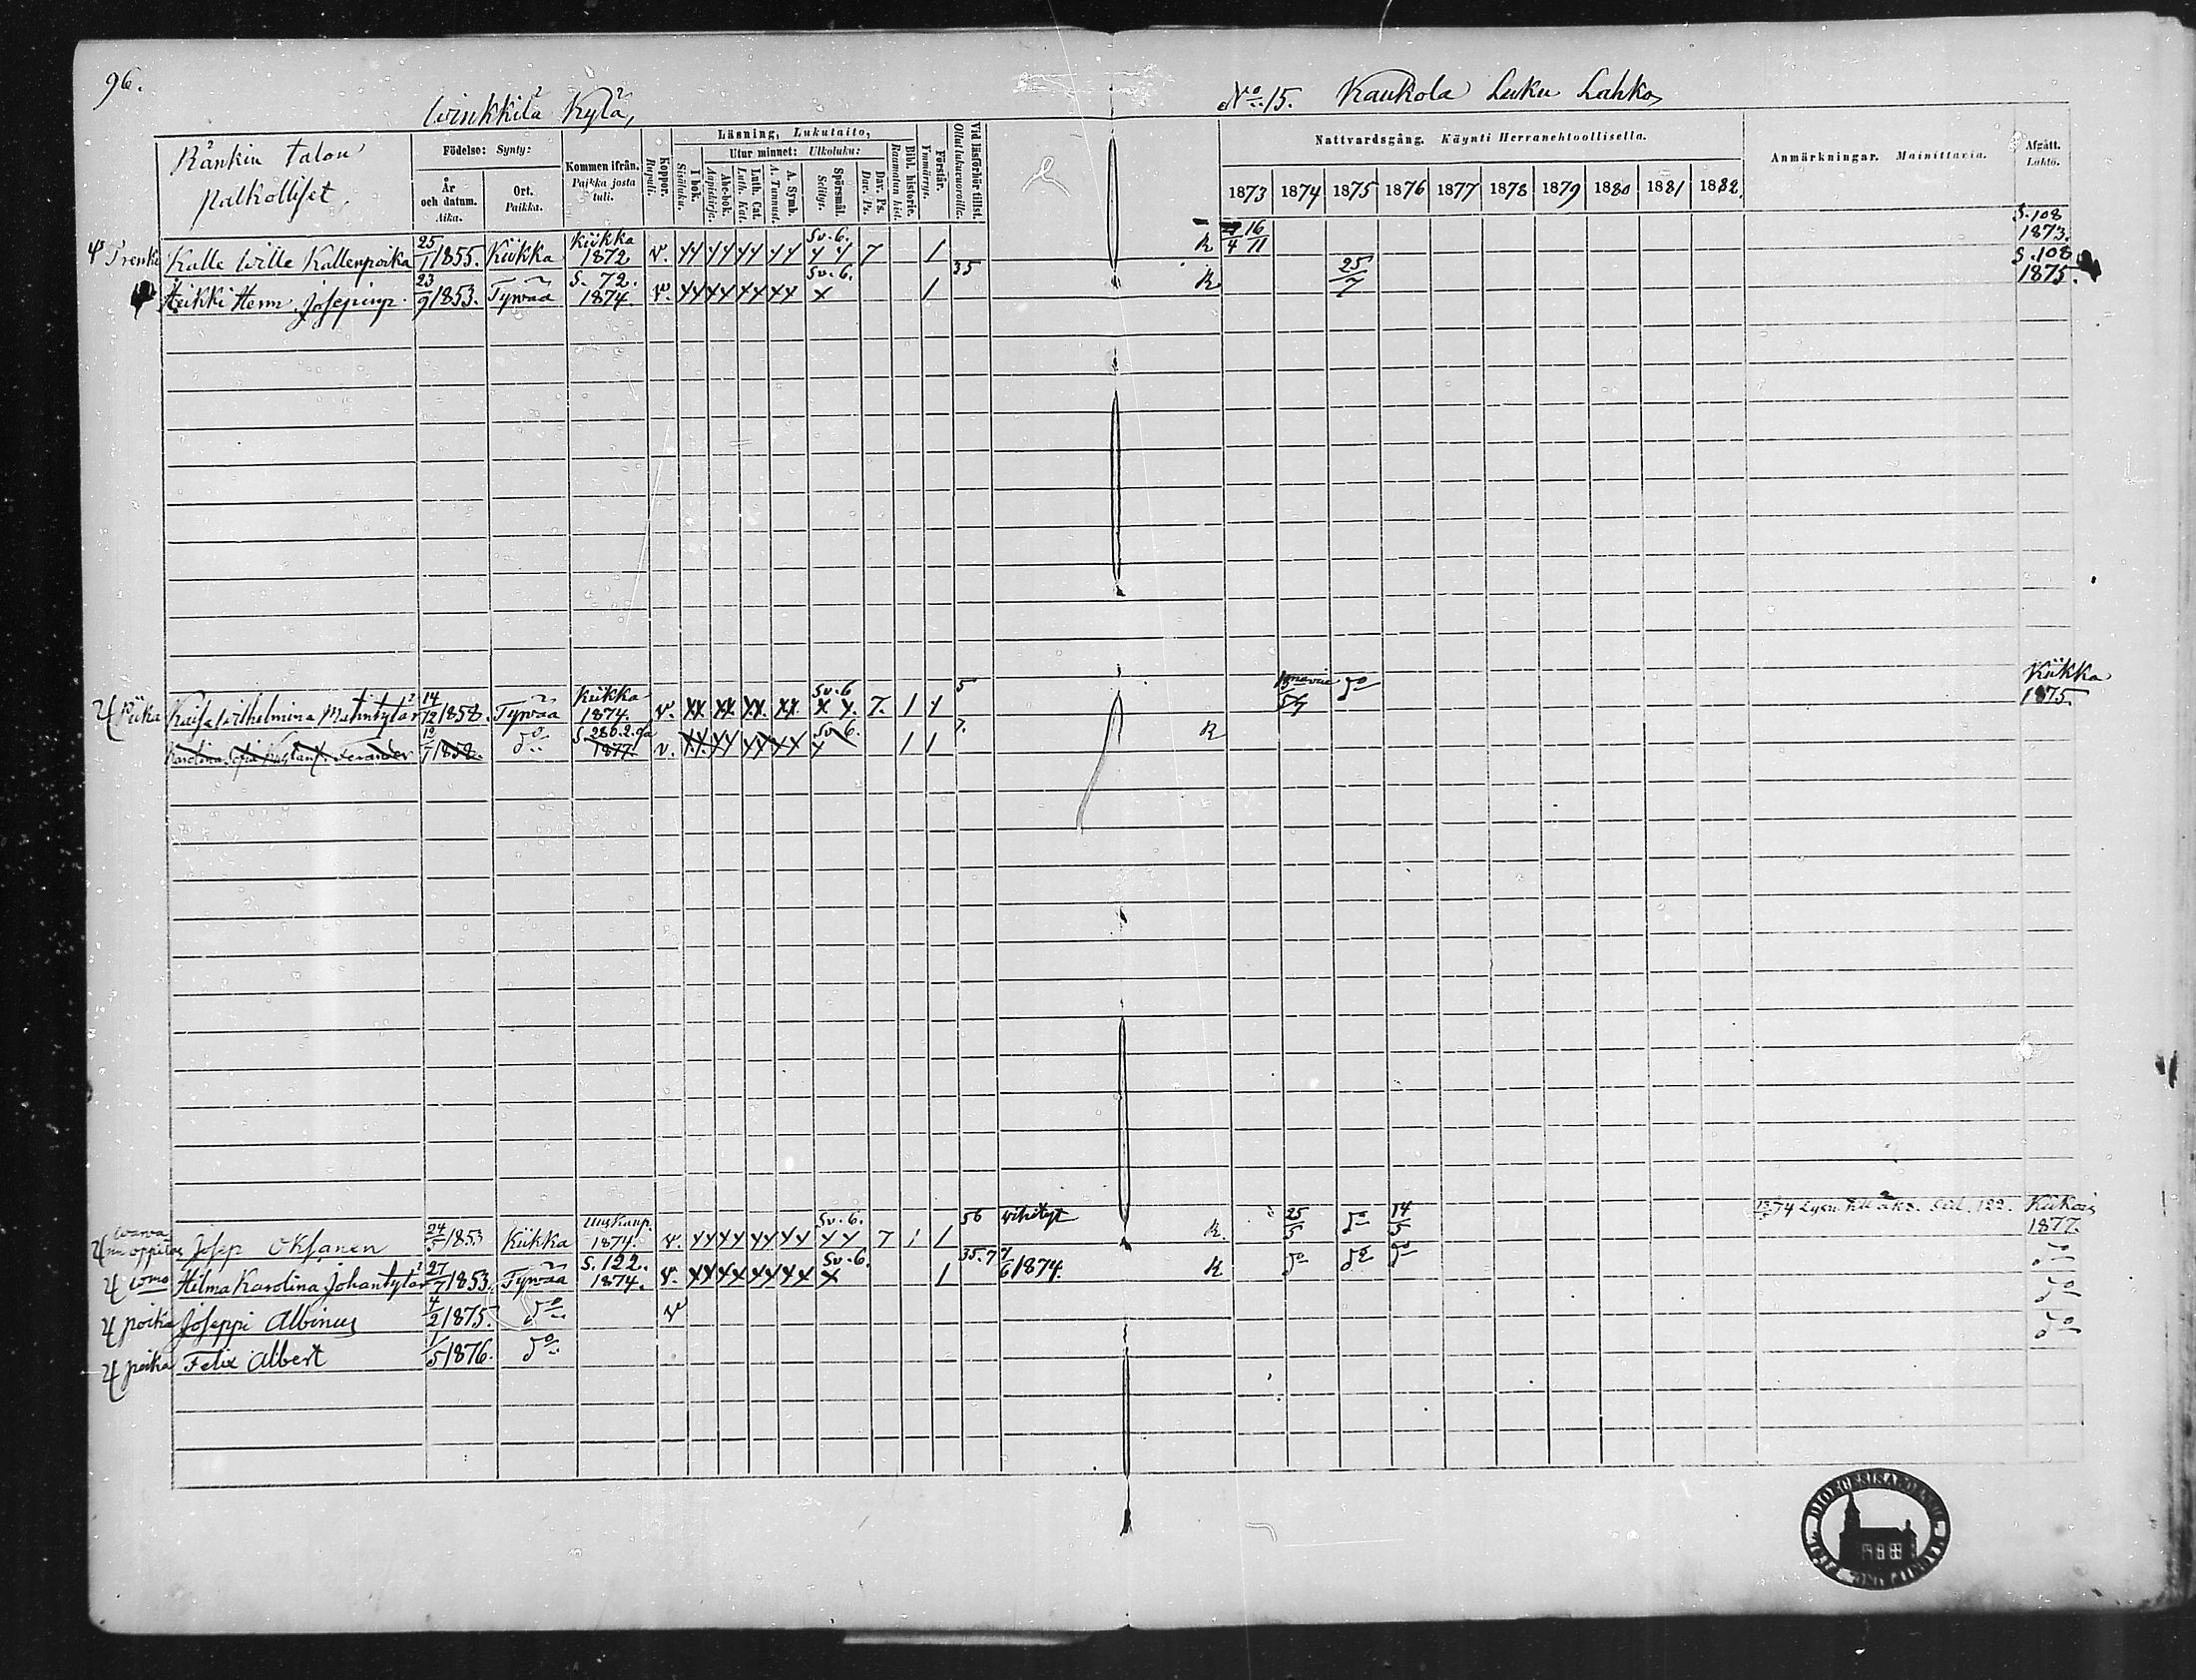 96.
Winkkilä Kylä,
No. 15. Kaukola Luku Lahko,
Ränkin talon
Palkolliset.
Födelse: Synty:
År och datum. Aika.
Ort. Paikka.
Kommen ifrån. Paikka josta tuli.
Koppor. Rupuli.
Läsning, Lukutaito,
I bok. Sisäluku.
Utur minnet: Ulkoluku:
Abc-bok. Aapiskirja.
Luth. Cat. Luth. Kat.
A. Symb. A. Tunnust.
Spörsmål. Selitys.
Dav. Ps. Dav. Ps.
Bibl. historie. Raamatun hist.
Förstår. Ymmärrys.
Vid läsförhör tillst. Ollut lukuvuoroilla.
Nattvardsgång. Käynti Herranehtoollisella.
1873 1874 1875 1876 1877 1878 1879 1880 1881 1882.
Anmärkningar. Mainittavia.
Afgått. Lähtö.
Trenki Kalle Wille Kallenpoika 25/1 1855. Kiikka Kiikka 1872. v. Sv. 6. 7 1 R 16/11 S. 108 1873.
Heikki Herm. Josepinp. 23/9 1853. Tyrvää S. 72. 1874. v. Sv. 6. 1 35 R. 25/7 S. 108 1875.
Piika Kaisa Wilhelmina Matintytär 14/12 1858. Tyrvää Kiikka 1874. v. Sv. 6 7. 1 1 5 do Kiikka 1875.
Karolina Sofia Kustant. Ferander 1858. do S. 286. 1877. v. Sv. 6. 1 1 7. R
oppilas Josep Oksanen 24/5 1853 Kiikka Uuskaup. 1874. v. Sv. 6. 7 1 1 56 vihityt R. 25/5 do 14/5 Kiikka 1877.
waimo Hilma Karolina Johantytär 27/7 1853. Tyrvää S. 122. 1874. v. Sv. 6. 1 35. 7 7/6 1874. R do do do do
poika Joseppi Albinus 4/2 1875. do v do
poika Felix Albert 1/5 1876. do do